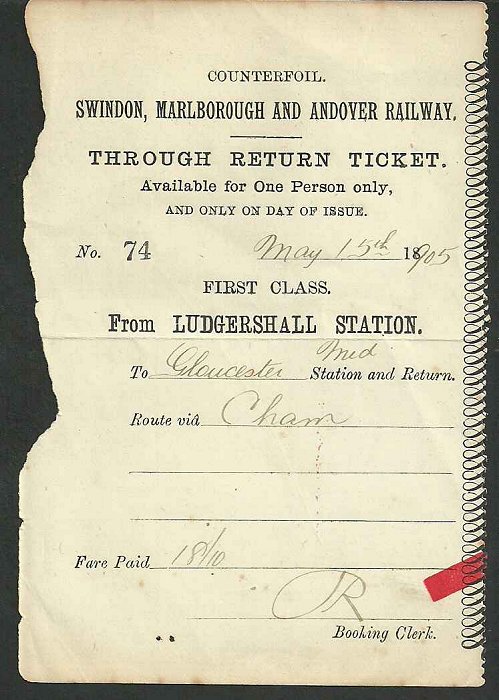 COUNTERFOIL.
SWINDON, MARLBOROUGH AND ANDOVER RAILWAY.
THROUGH RETURN TICKET.
Available for One Person only,
AND ONLY ON DAY OF ISSUE.
No. 74 May 15th 18905
FIRST CLASS.
From LUDGERSHALL STATION.
To Gloucester Mid Station and Return.
Route viâ Cham
Fare Paid 18/10
R
Booking Clerk.